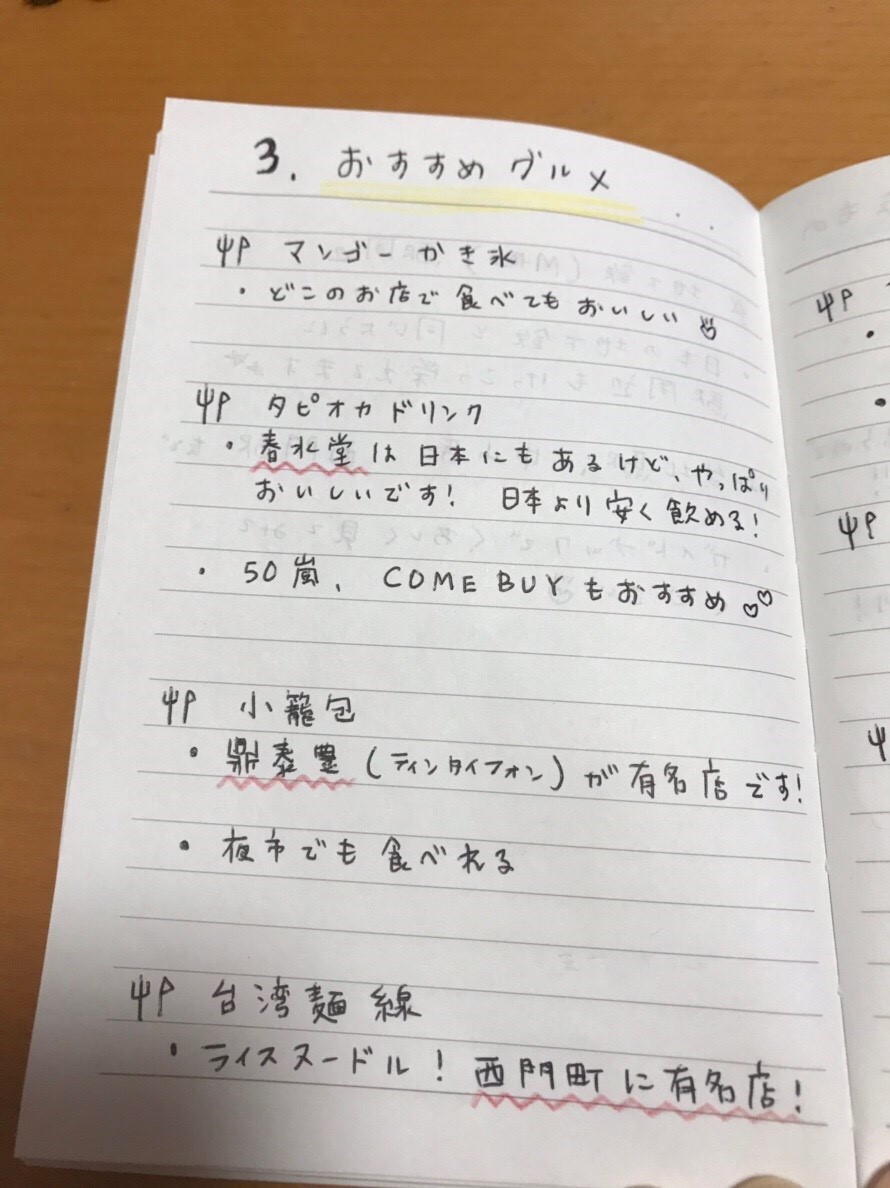 3. おすすめグルメ
マンゴーかき氷
・どこのお店で食べてもおいしい
タピオカドリンク
・春水堂は日本にもあるけど、やっぱり
おいしいです! 日本より安く飲める!
・50嵐、COMEBUYもおすすめ♡♡
小籠包
・鼎泰豊(ティンタイフォン)が有名店です!
・夜市でも食べれる
台湾麺線
・ライスヌードル! 西門町に有名店!